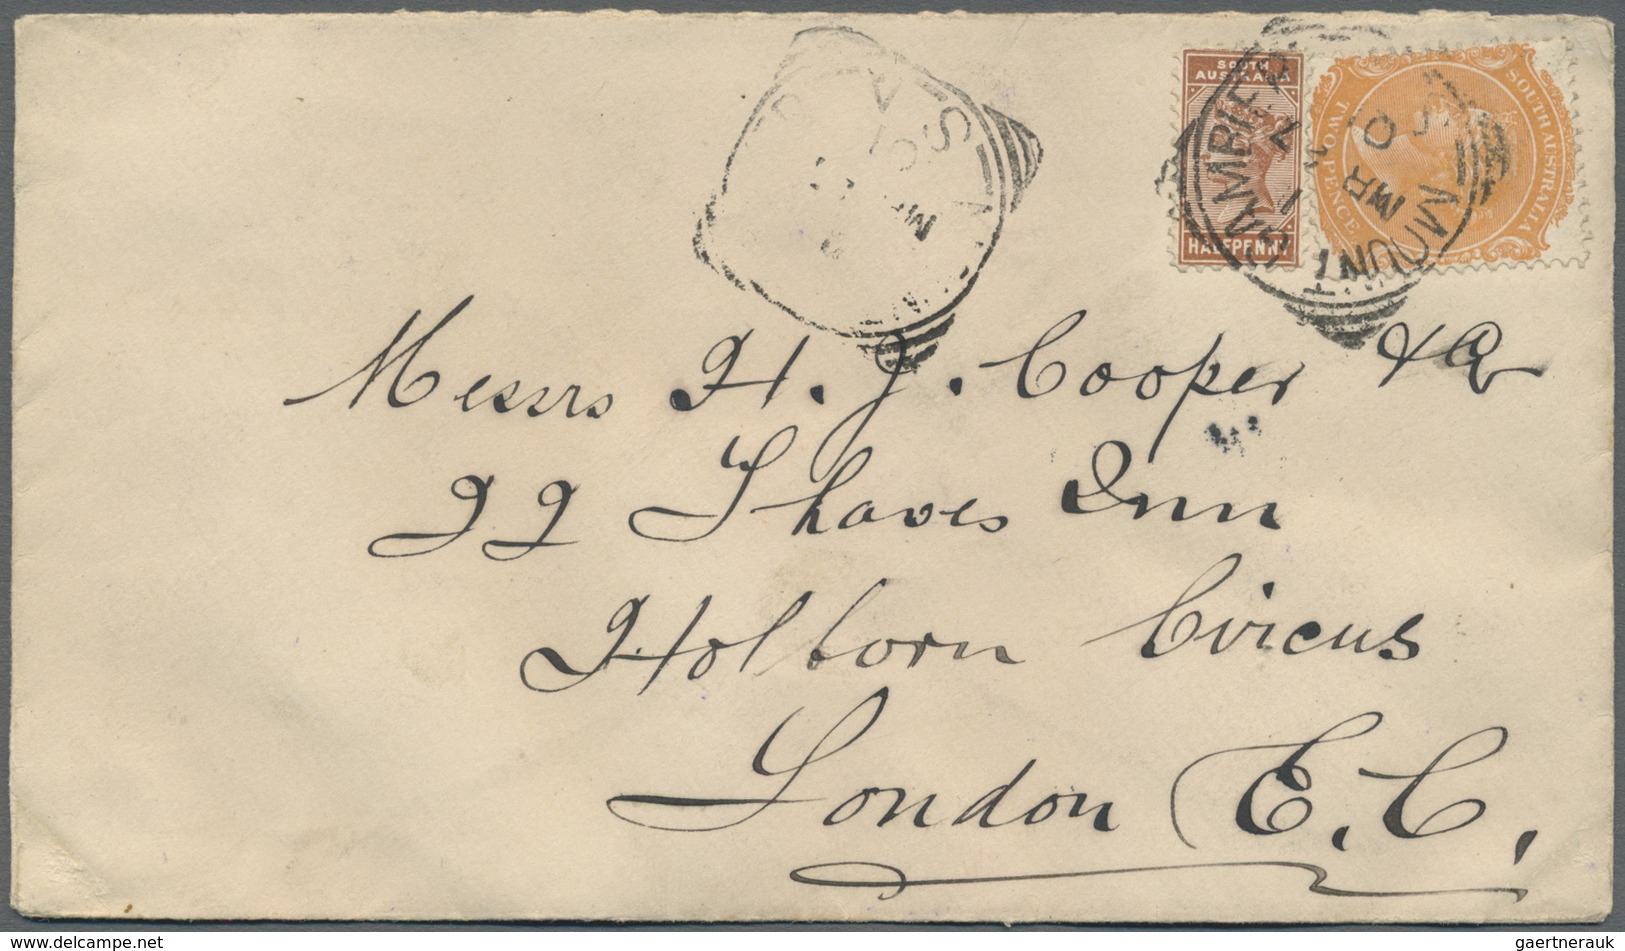 SOUTH
AUSTRALIA
HALFPENNY
SOUTH AUSTRALIA
TWO PENCE
MOUNT GAMBIER
MR
Messrs H. J. Cooper & Co
22 Thaves Inn
Holborn Circus
London E.C.
© www.delcampe.net
gaertnerauk